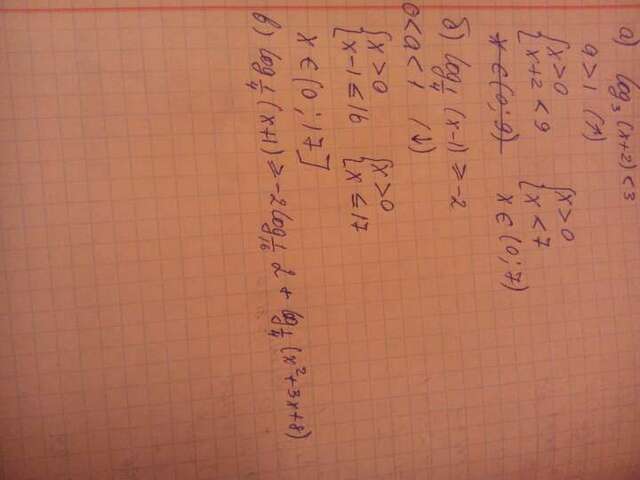 а) log₃ (x+2) < 3
a > 1 (↑)
{x > 0
{x+2 < 9
{x > 0
{x < 7
x ∈ (0; 9)
x ∈ (0; 7)
б) log_{1/4} (x-1) ≥ -2
0 < a < 1 (↓)
{x > 0
{x-1 ≤ 16
{x > 0
{x ≤ 17
x ∈ (0; 17]
в) log_{1/4} (x+1) ≥ -2 log_{1/16} 2 + log_{1/4} (x²+3x+8)